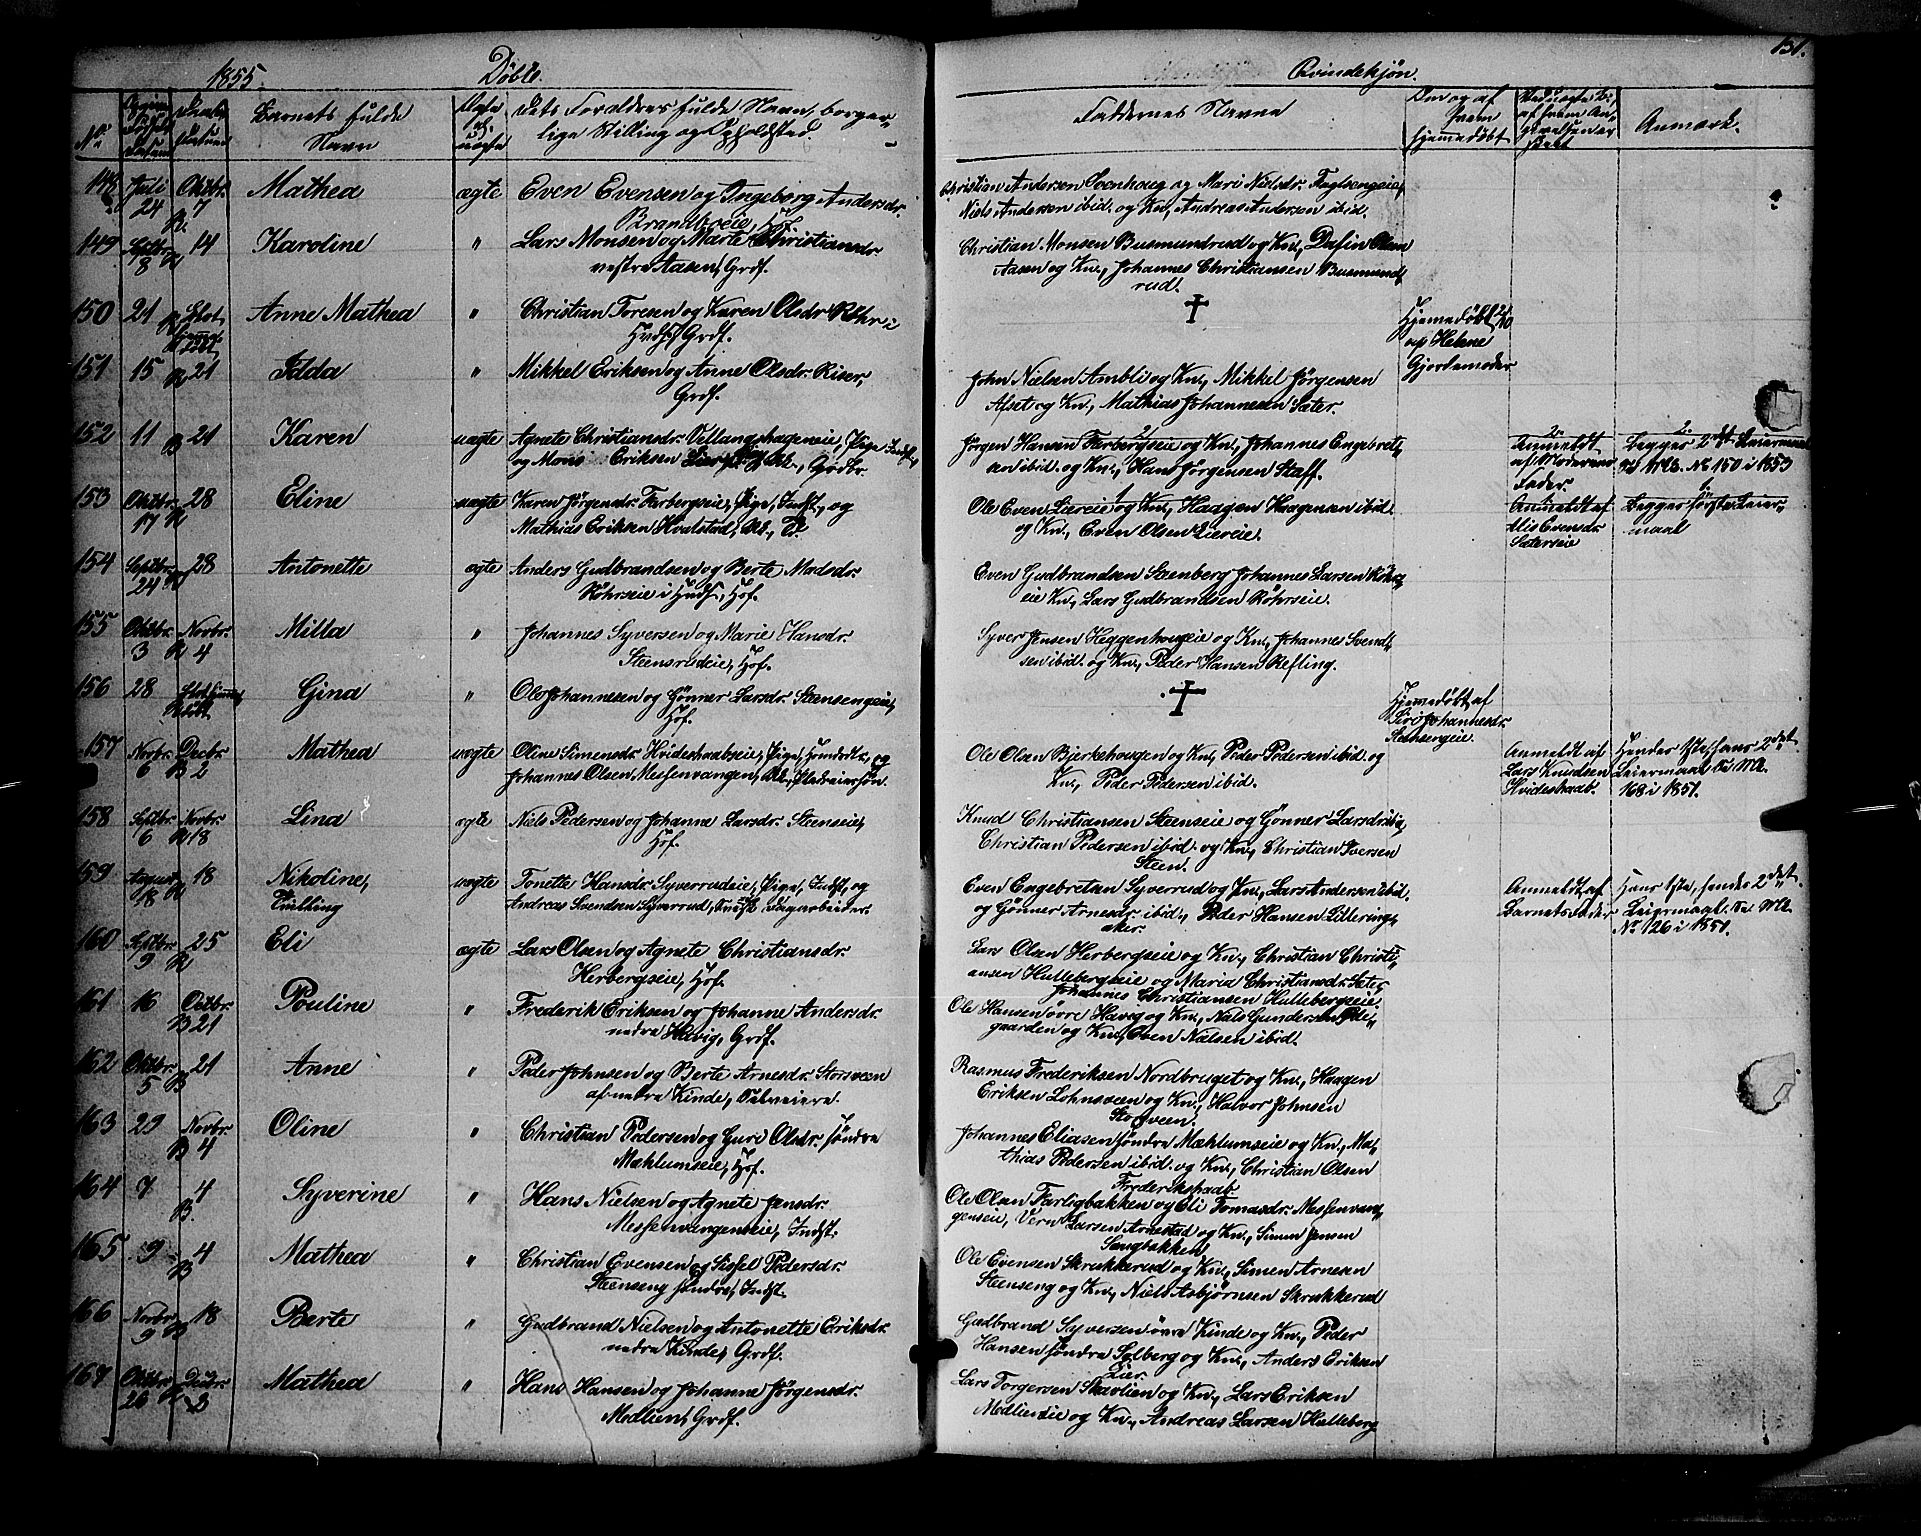 1855. Döbte. Qvindekjön. 151.
No. Barnets fulde Navn
Dets Forældres fulde Navn, borgerlige Stilling og Opholdsted.
Faddernes Navne
Om og af hvem hjemmedöbt
Anmærk.
148 Juli 24 Oktbr. 7 Mathea ægte Even Evensen og Ingeborg Andersdr. Brandbyeie, Hof.
Christian Andersen Svenhoug og Mari Nielsdr.
Niels Andersen ibid. og Kn., Andreas Andersen ibid.
149 Septbr. 8 14 Karoline " Lars Monsen og Marte Christiansdr.
vestre Aasen, Grdf.
Christian Monsen Busmundrud og Kn., Dafin Olsen
Aasen og Kn., Johannes Christiansen Busmund,,
rud.
150 21 Anne Mathea " Christian Toresen og Karen Olsdr. Röhr i
Hudsf Grdf.
†
Hjemmedöbt
af Helene
Gjordemoder
151 15 21 Idda " Mikkel Eriksen og Anne Olsdr. Riser,
Grdf.
John Nielsen Ambli og Kn., Mikkel Jörgensen
Afset og Kn., Mathias Johannesen Sæter.
152 11 21 Karen uægte Agnete Christiansdr. Vellangshageneie, Pige, Indst.,
og Mons Eriksen
Jörgen Hansen Farbergseie og Kn., Johannes Engebret,,
sen ibid. og Kn., Hans Jörgensen Staff.
2. Anmeldt af Moderens Fader.
2. Begges 2det Leiermaal
No 150 i 1853
153 Oktbr. 17 28 Eline uægte Karen Jörgensdr. Farbergseie, Pige, Indst., og
Mathias Eriksen Hvalstad, Ul., Tj.
Ole Even Liereie og Kn., Haagen Haagensen ibid.
og Kn., Even Olsen Liereie.
Anmeldt af
Alis Evensdr.
Sæterseie
Begges förste Leier,,
maal
154 Septbr. 24 28 Antonette ægte Anders Gudbrandsen og Berte Madsdr.
Röhrseie i Hudsf, Hof.
Even Gudbrandsen Steenberg, Johannes Larsen Röhrs,,
eie Kn., Lars Gudbrandsen Röhrseie.
155 Oktbr. 3 Novbr. 4 Milla " Johannes Syversen og Marie Hansdr.
Steensrudeie, Hof.
Syver Jensen Heggenhougeie og Kn., Johannes Svend,,
sen ibid. og Kn., Peder Hansen Refling.
156 28 Gina " Ole Johannesen og Gönner Larsdr. Steensengeie,
Hof.
†
Hjemmedöbt af
Siri Johannesdr.
Steensengeie.
157 Novbr. 6 Decbr. 2 Mathea uægte Oline Simensdr. Hvideskaabseie, Pige, og
Johannes Olsen Messenvangen, Ul., Pladeiersön.
Ole Olsen Bjerkehougen og Kn., Peder Pedersen ibid. og
Kn., Peder Pedersen ibid.
Anmeldt af
Lars Knudsen
Hvideskaab.
Hendes 1ste, hans 2det
Leiermaal.
168 i 1851.
158 Septbr. 6 Novbr. 18 Lina ægte Niels Pedersen og Johanne Larsdr. Steenseie,
Hof.
Knud Christiansen Steenseie og Gönner Larsdr. ibid,
Christian Pedersen ibid. og Kn., Christian Iversen
Steen.
159 August 18 18 Nikoline,
Tvilling
uægte Tonette Hansdr. Syverrudeie, Pige, Indst., og
Andreas Svendsen Syverrud, Indst. Dagarbeider.
Even Engebretsen Syverrud og Kn., Lars Andersen ibid.
og Gönner Arnesdr. ibid., Peder Hansen Lillering,,
aker.
Anmeldt af
Barnets Fader
Hans 1ste, hendes 2det
Leiermaal.
No 126 i 1851.
160 Septbr. 9 25 Eli ægte Lars Olsen og Agnete Christiansdr.
Herbergseie, Hof.
Lars Olsen Herbergseie og Kn., Christian Christi,,
ansen Hullebergseie og Maria Christiansdr. Sæter,
Johannes Christiansen Hullebergseie.
161 16 Octbr. 21 Pouline " Frederik Eriksen og Johanne Andersdr.
nedre Hævig, Grdf.
Ole Hansen övre Hævig og Kn., Niels Gundersen
gaarden og Kn., Even Nielsen ibid.
162 Oktbr. 5 21 Anne " Peder Johnsen og Berte Arnesdr. Storsveen
af nedre Kinde, Selveiere.
Rasmus Frederiksen Nordbruget og Kn., Haagen
Eriksen Lohnsveen og Kn., Halvor Johnsen
Storsveen.
163 29 Novbr. 4 Oline " Christian Pedersen og Guri Olsdr. söndre
Mæhlumseie, Hof.
Johannes Eliasen söndre Mæhlumseie og Kn., Ma,,
thias Pedersen ibid. og Kn., Christian Olsen
Frederikshaab.
164 7 4 Syverine " Hans Nielsen og Agnete Jensdr.
Messenvangenseie, Indst.
Ole Olsen Farligbakken og Eli Tomasdr. Messenvan,,
genseie, Larsen Arnestad og Kn., Simen Jensen
Sangbakken
165 9 4 Mathea " Christian Evensen og Sissel Pedersdr.
Steenseng söndre, Indst.
Ole Evensen Skrukkerud og Kn., Simen Arnesen
Steenseng og Kn., Niels Asbjörnsen Skrukkerud
166 Novbr. 9 18 Berte " Gudbrand Nielsen og Antonette Eriksdr.
nedre Kinde, Grdf.
Gudbrand Syversen övre Kinde og Kn., Peder
Hansen söndre Solberg og Kn., Anders Eriksen
Lier.
167 Oktbr. 26 Decbr. 2 Mathea " Hans Hansen og Johanne Jörgensdr.
Medlien, Grdf.
Lars Torgersen Skavlien og Kn., Lars Eriksen
Medlieneie og Kn., Andreas Larsen Hulleberg